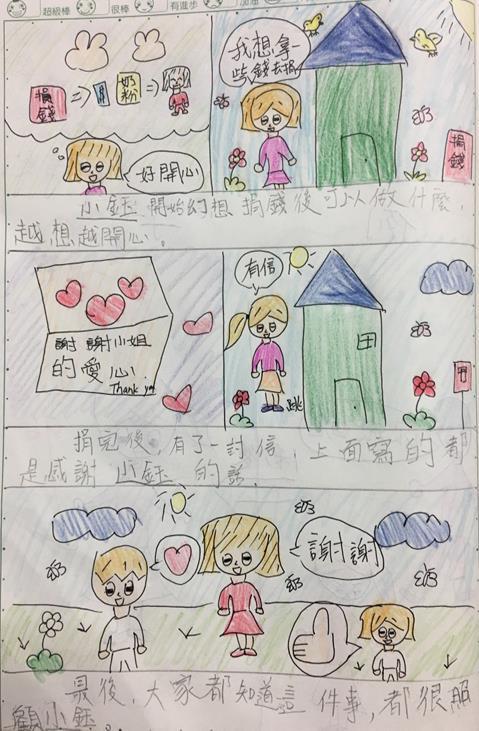 超級棒 很棒 有進步 加油
捐錢
奶粉
好開心
我想拿一
些錢去捐
捐錢
小鈺開始幻想捐錢後可以做什麼，
越想越開心。
謝謝小姐
的愛心.
Thank you
有信
跳
捐完後，有了一封信，上面寫的都
是感謝小鈺的話。
謝謝
最後，大家都知道這件事，都很照
顧小鈺。